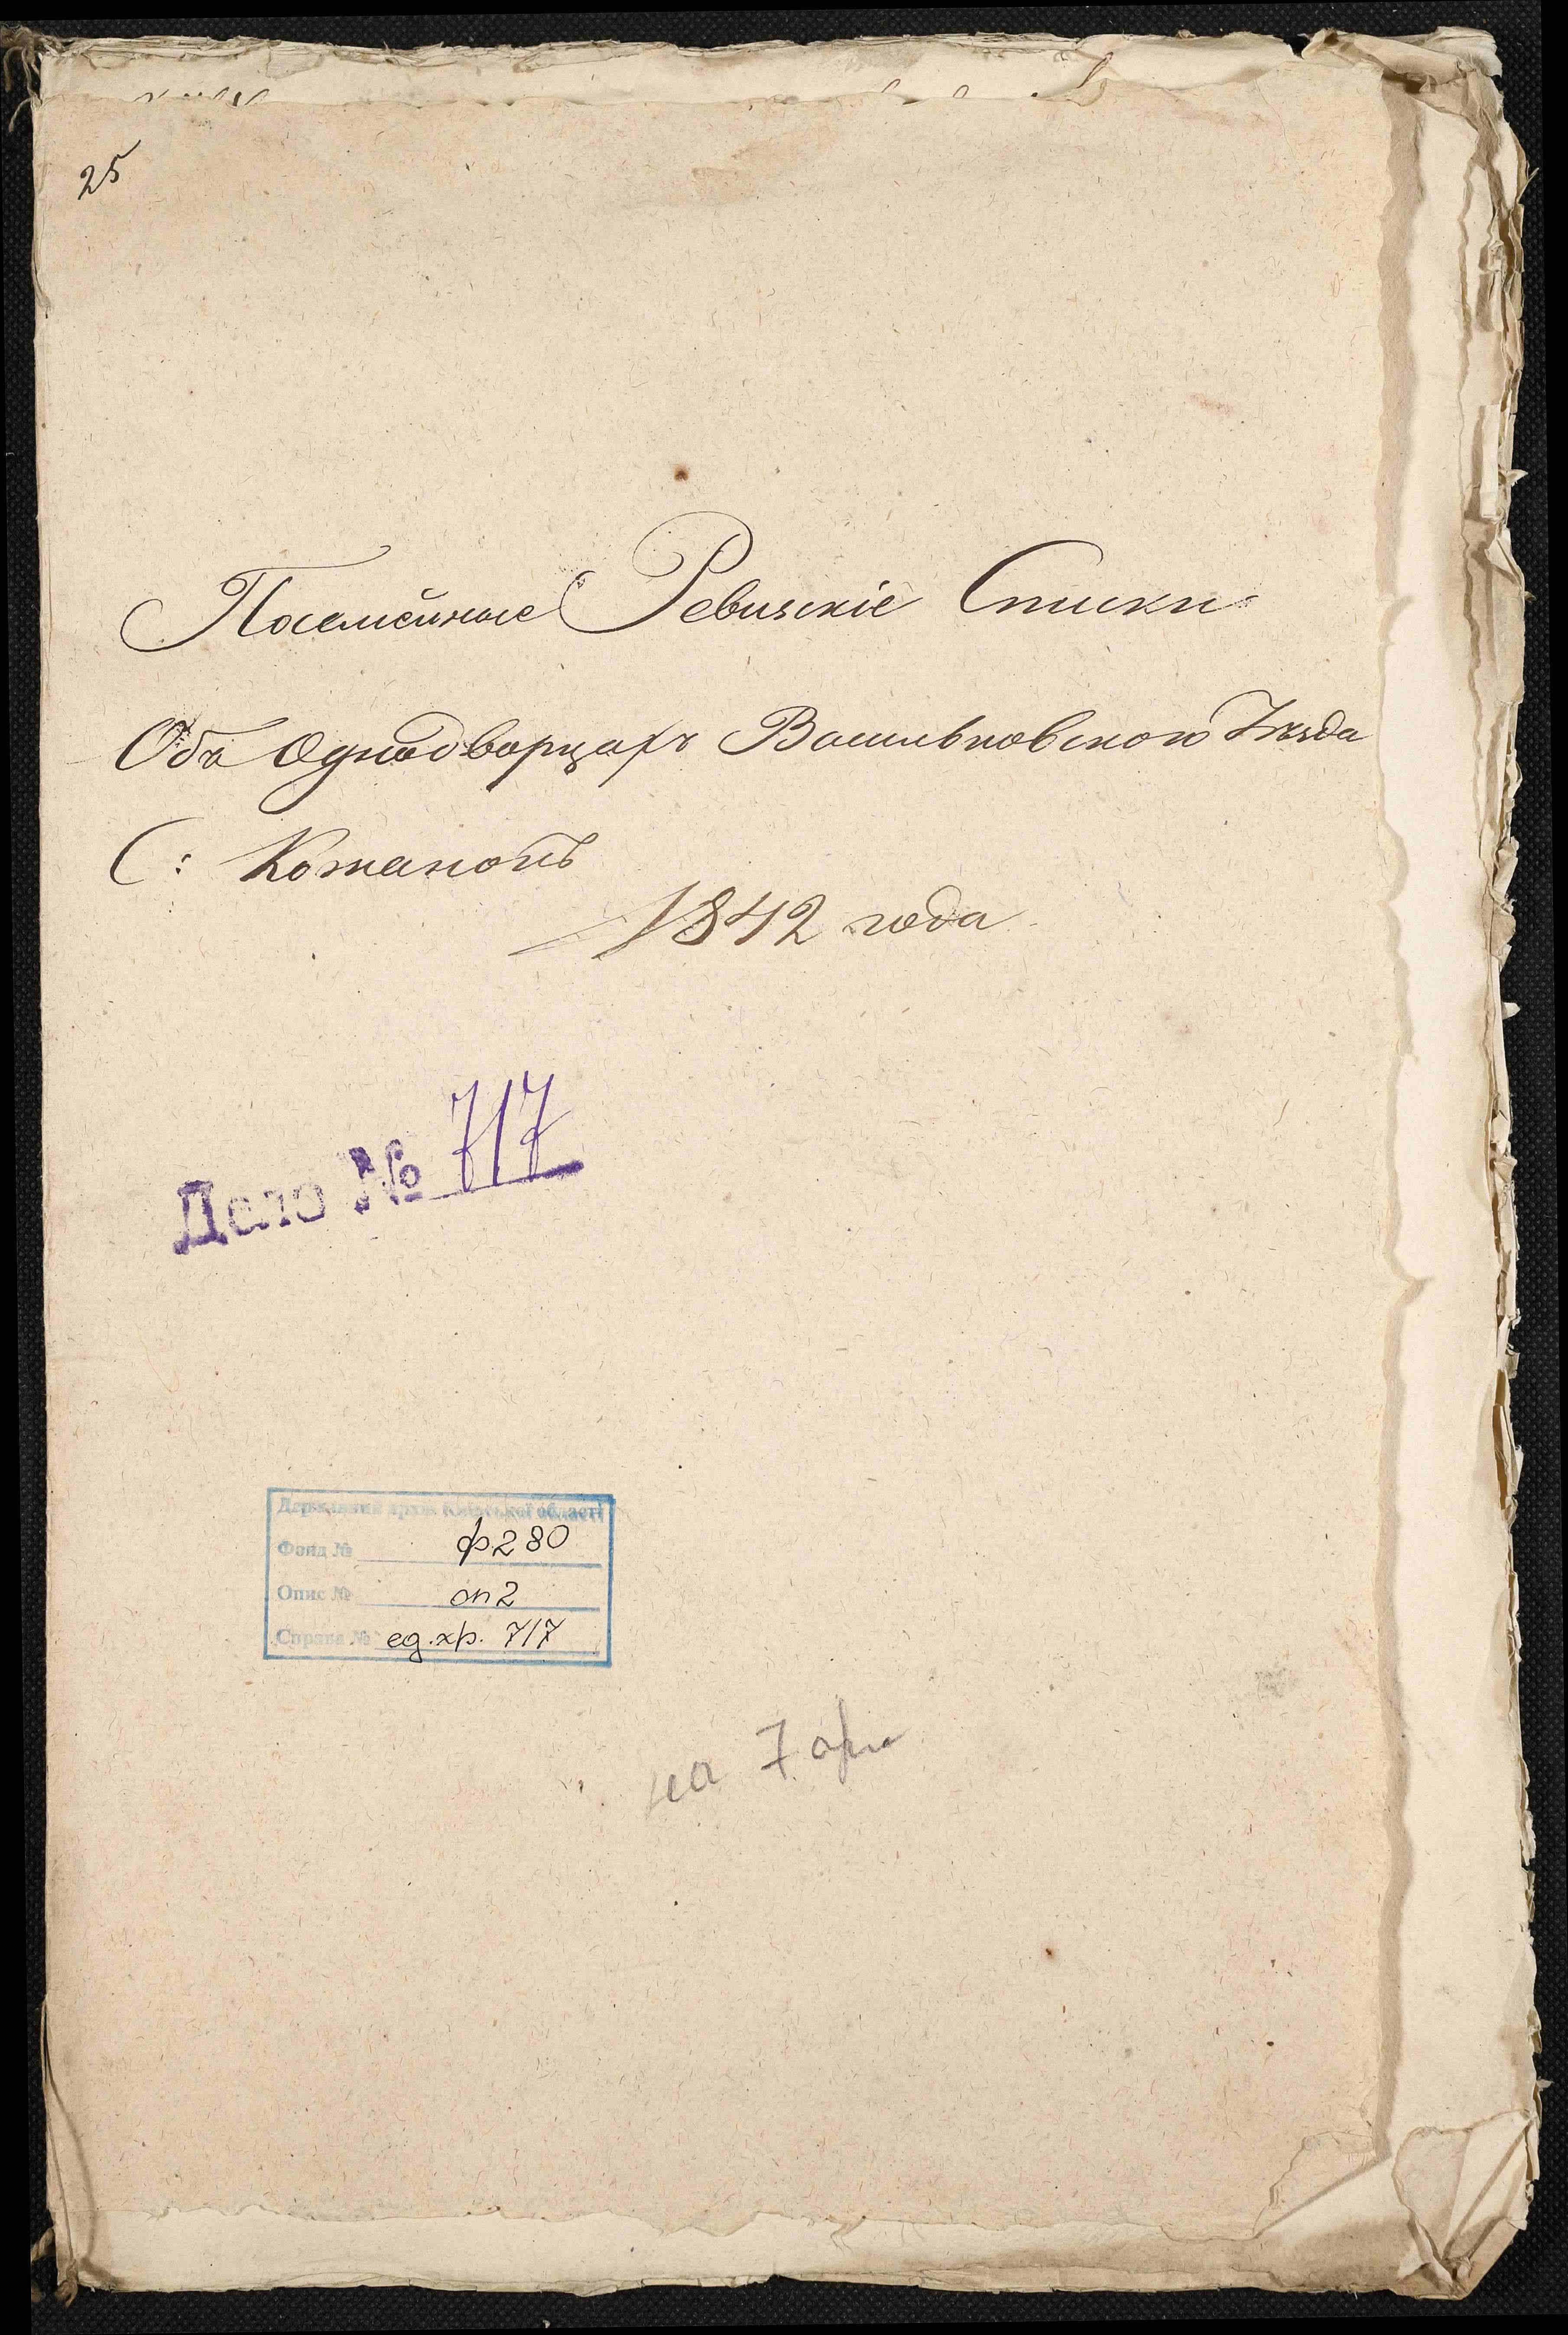 25
Посемейные Ревизскіе Списки
Объ Однодворцахъ Васильковского Уезда
С: Кожанокъ
1842 года
Дело № 717
Державний архів Київської області
Фонд № ф280
Опис № оп2
Справа № ед.хр. 717
на 7